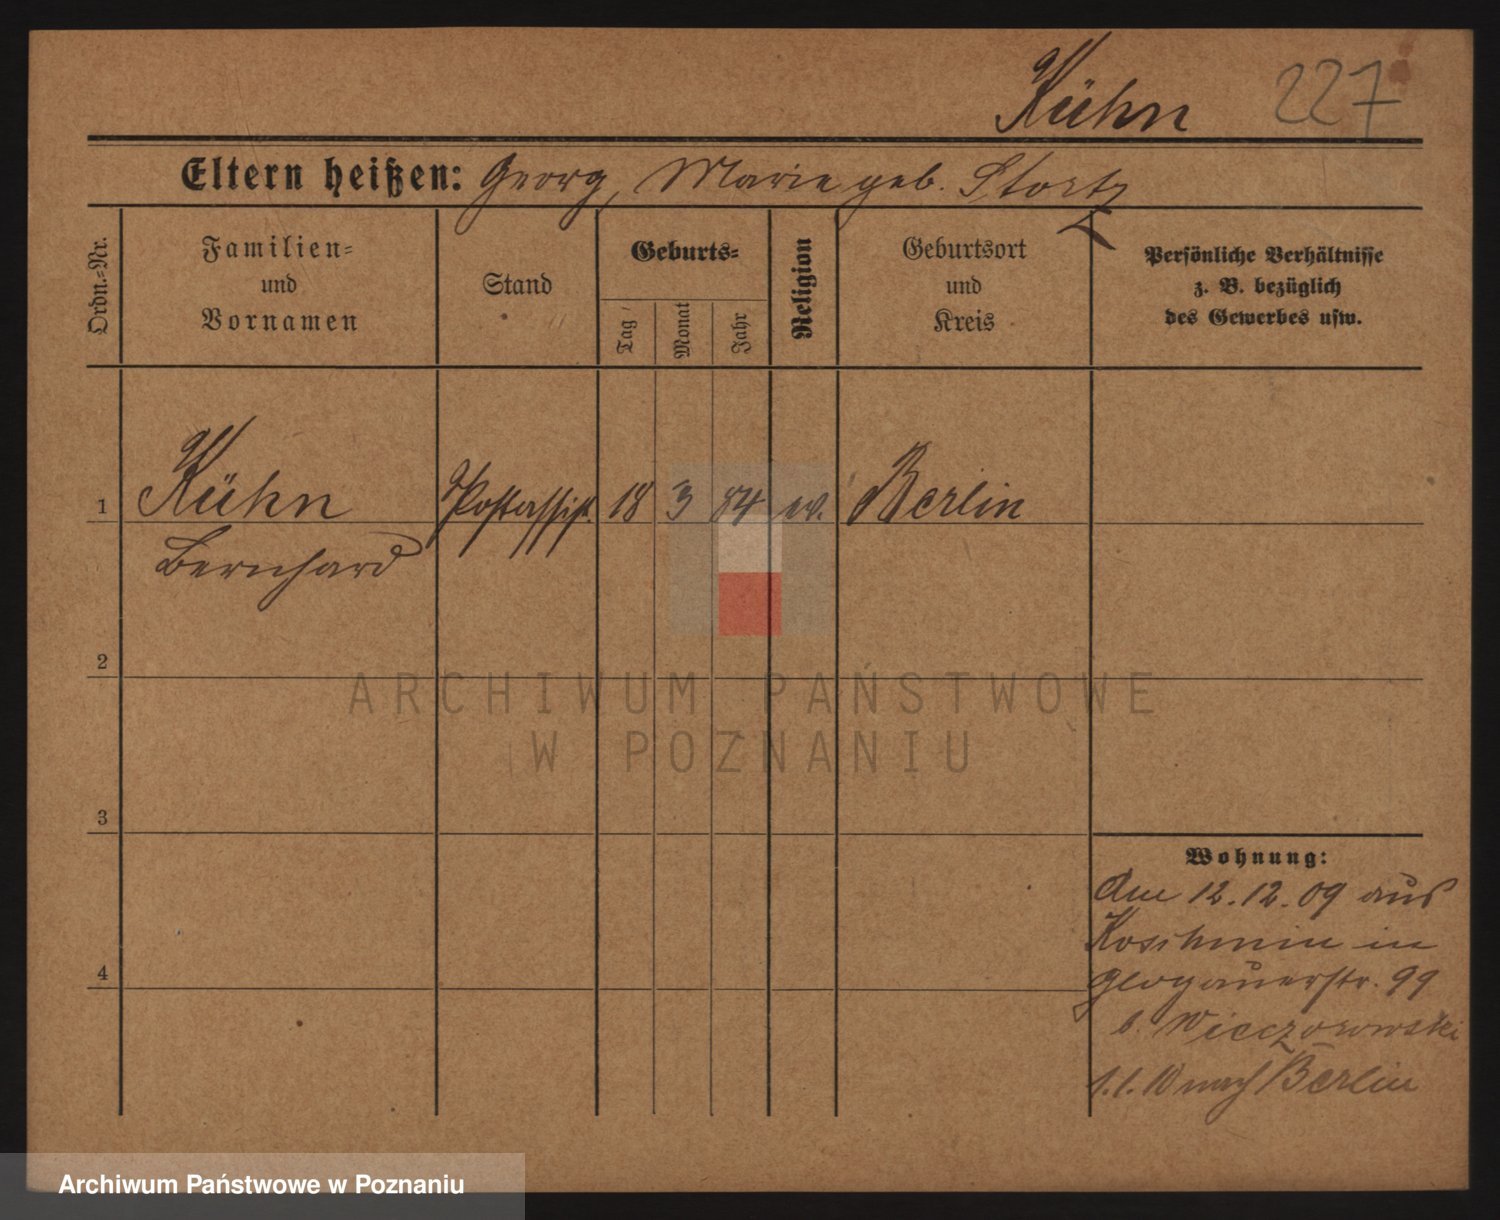 Kühn 227
Eltern heißen: Georg, Marie geb. Stortz
Ordn.=Nr.
Familien=
und
Vornamen
Stand
Geburts=
Tag
Monat
Jahr
Religion
Geburtsort
und
Kreis
Persönliche Verhältnisse
z. B. bezüglich
des Gewerbes usw.
1 Kühn Postassist. 18 3 84 ev. Berlin
Bernhard
2
3
4
Wohnung:
Am 12.12.09 aus
Koschmin in
Glogauerstr. 99
b. Wieczorowski
1.1.10 nach Berlin
ARCHIWUM PAŃSTWOWE
W POZNANIU
Archiwum Państwowe w Poznaniu